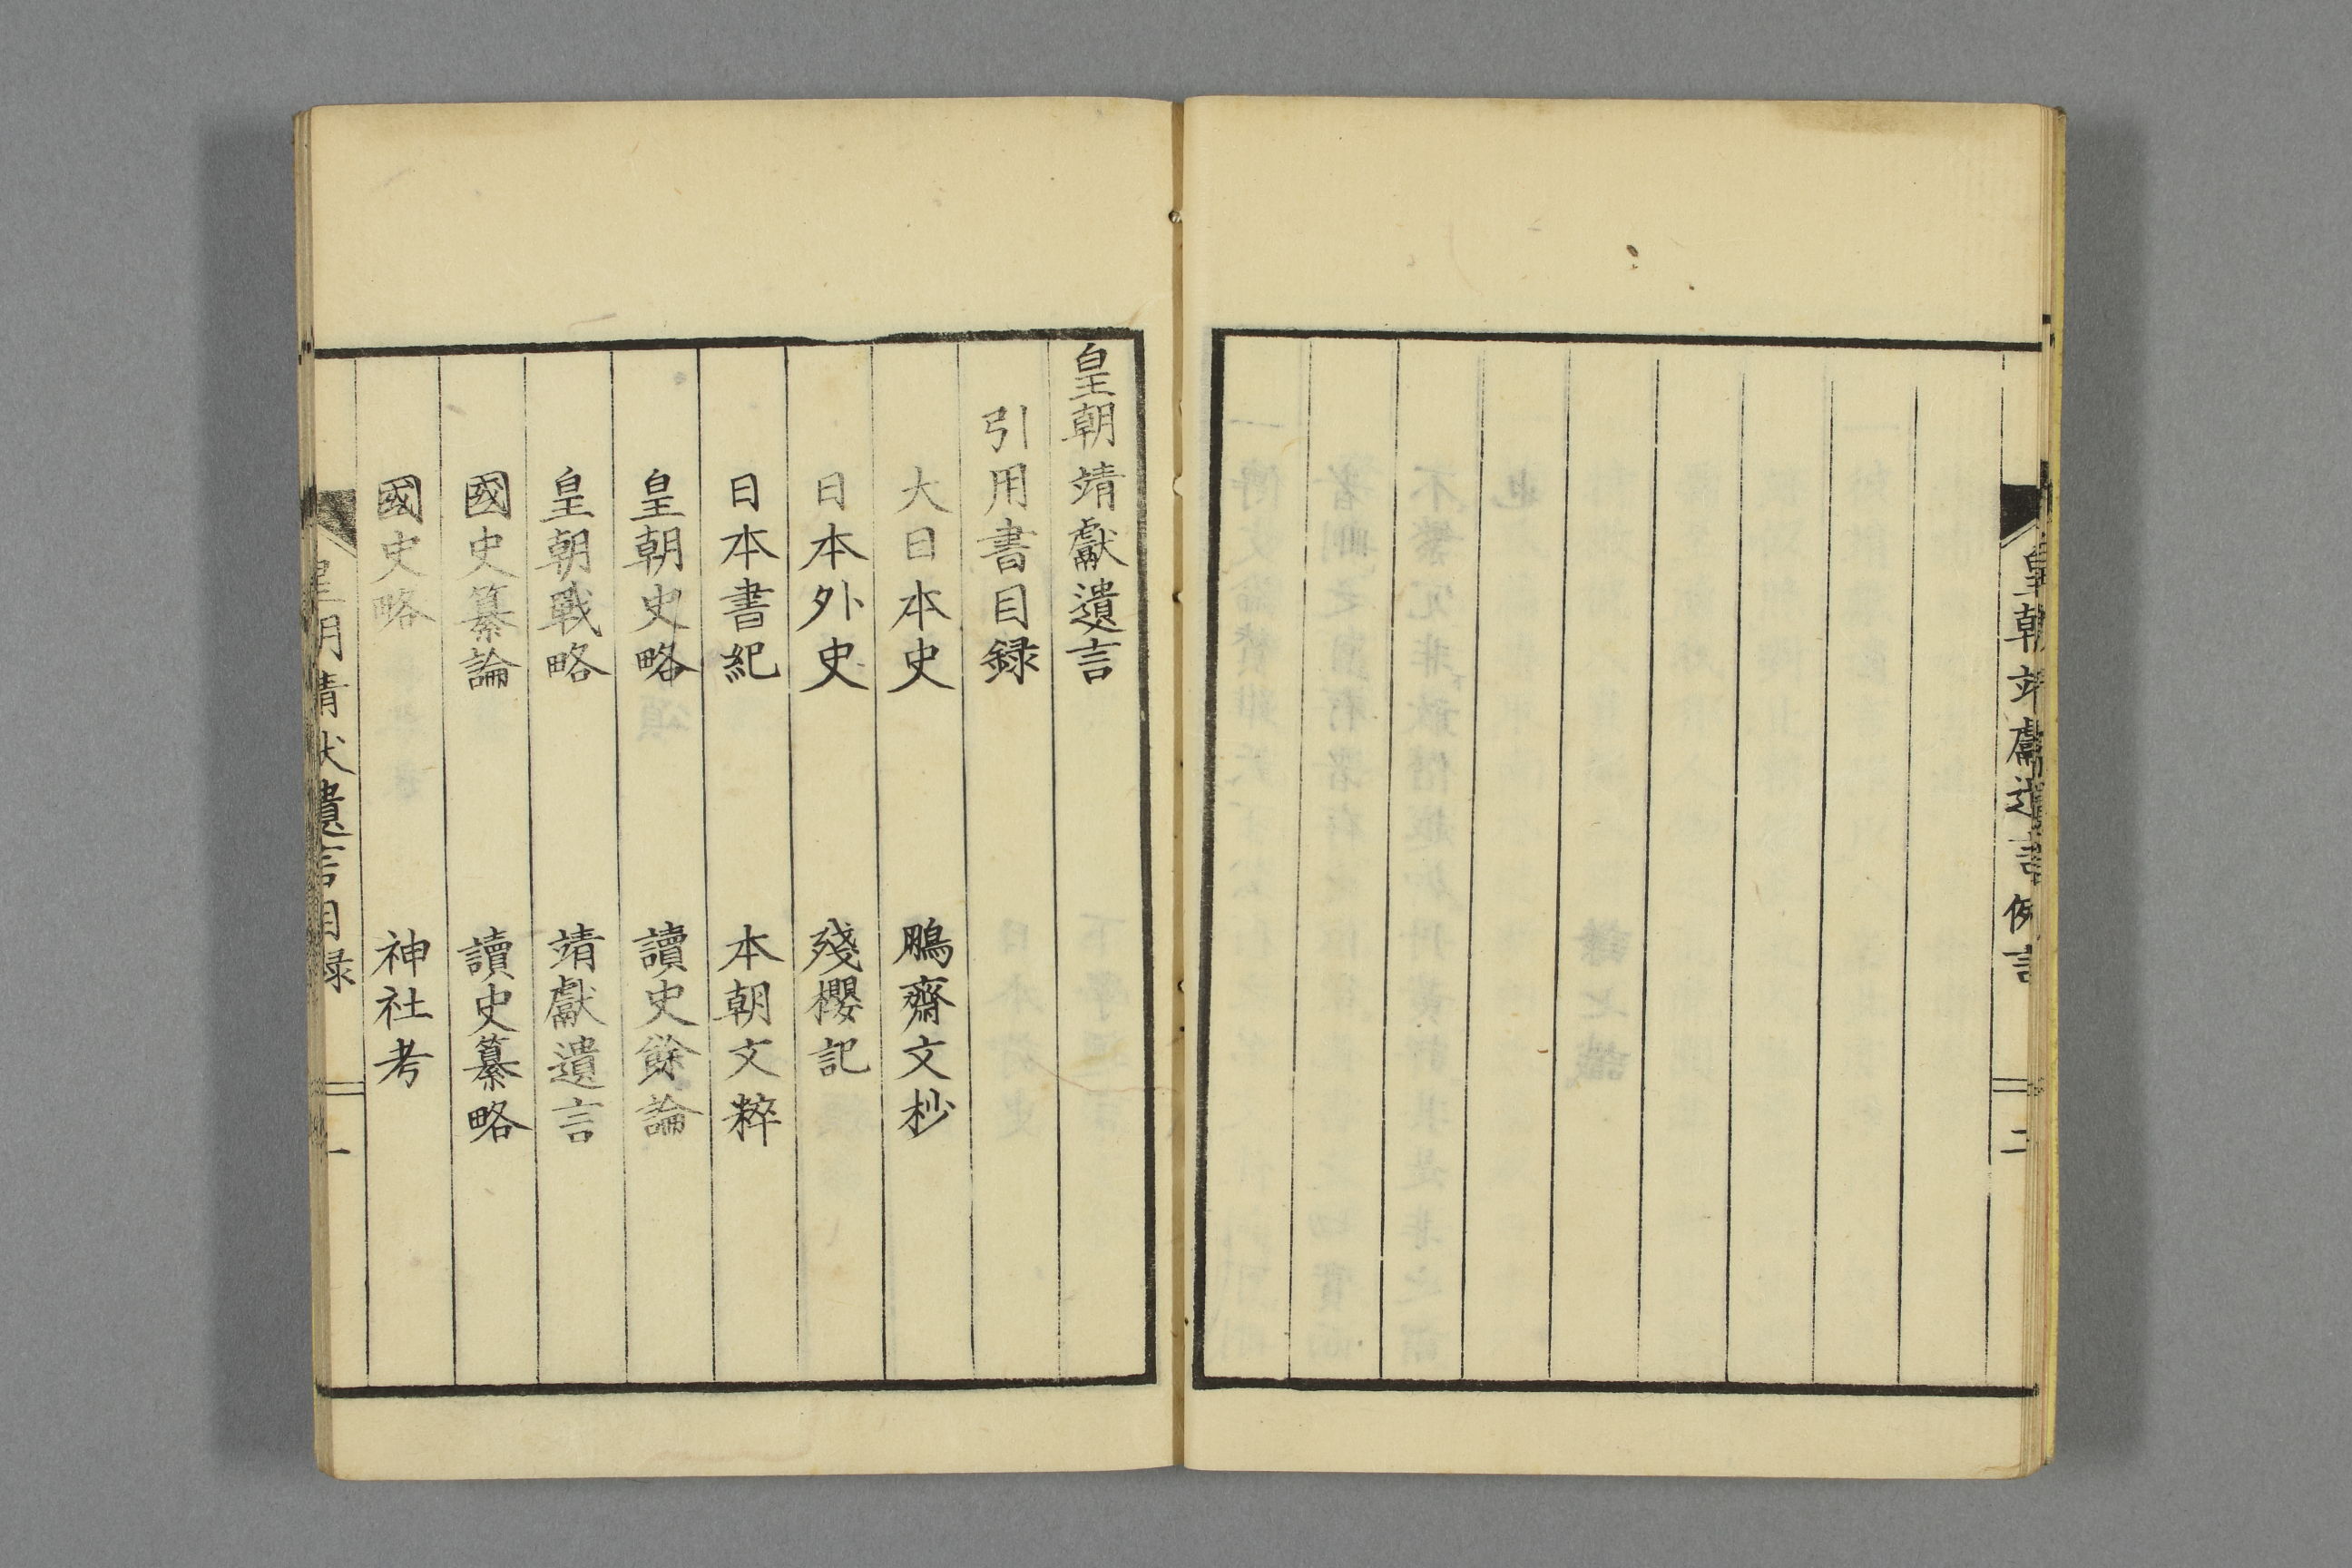 皇朝靖獻遺言例言
二
皇朝靖獻遺言
引用書目録
大日本史　鵬齋文抄
日本外史　殘櫻記
日本書紀　本朝文粹
皇朝史略　讀史餘論
皇朝戰略　靖獻遺言
國史纂論　讀史纂略
國史略　神社考
皇朝靖献遺言目録
一